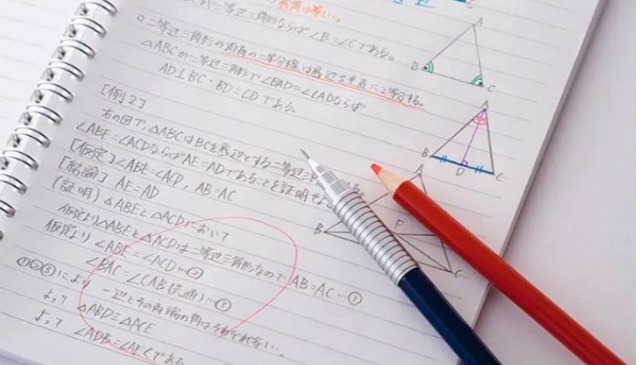 二等辺三角形ならば∠B=∠Cである。
A
B
C
○二等辺三角形の頂角の二等分線は底辺を垂直に2等分する。
△ABCが二等辺三角形で∠BAD=∠CADならば
AD⊥BC・BD=CDである。
A
B
D
C
[例2]
右の図で、△ABCはBCを底辺とする二等辺三
∠ABE=∠ACDならばAE=ADであることを証明せ
[仮定] ∠ABE=∠ACD, AB=AC
[結論] AE=AD
(証明) △ABEと△ACDにおいて
仮定より△ABEと△ACDは二等辺三角形なので AB=AC…①
仮定より ∠ABE=∠ACD…②
∠BAC=∠CAB(共通)…③
①②③により 一辺とその両端の角は
よって △ABD≡△ACE
よって ∠ADB=∠AECである
A
B
F
C